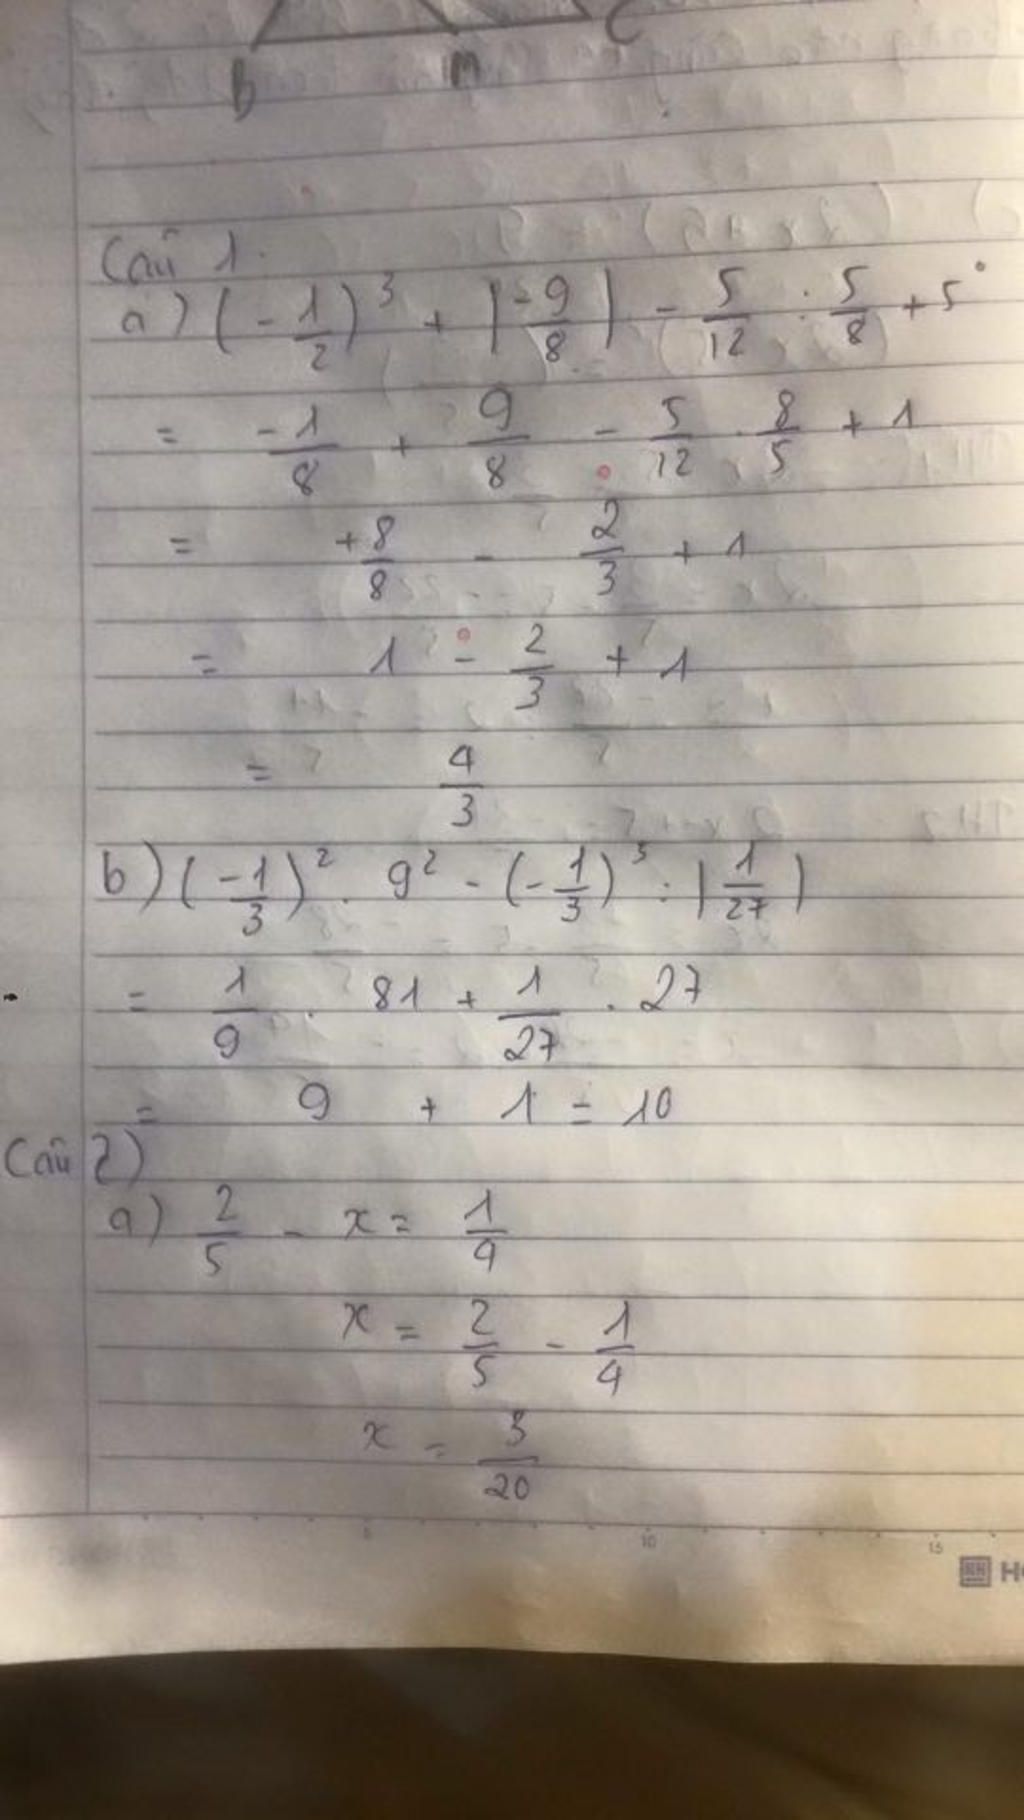 B M C
Câu 1.
a) (-1/2)^3 + |-9/8| - 5/12 : 5/8 + 5^0
= -1/8 + 9/8 - 5/12 . 8/5 + 1
= +8/8 - 2/3 + 1
= 1 - 2/3 + 1
= 4/3
b) (-1/3)^2 . 9^2 - (-1/3)^3 : |1/27|
= 1/9 . 81 + 1/27 . 27
= 9 + 1 = 10
Câu 2)
a) 2/5 - x = 1/4
x = 2/5 - 1/4
x = 3/20
10 15